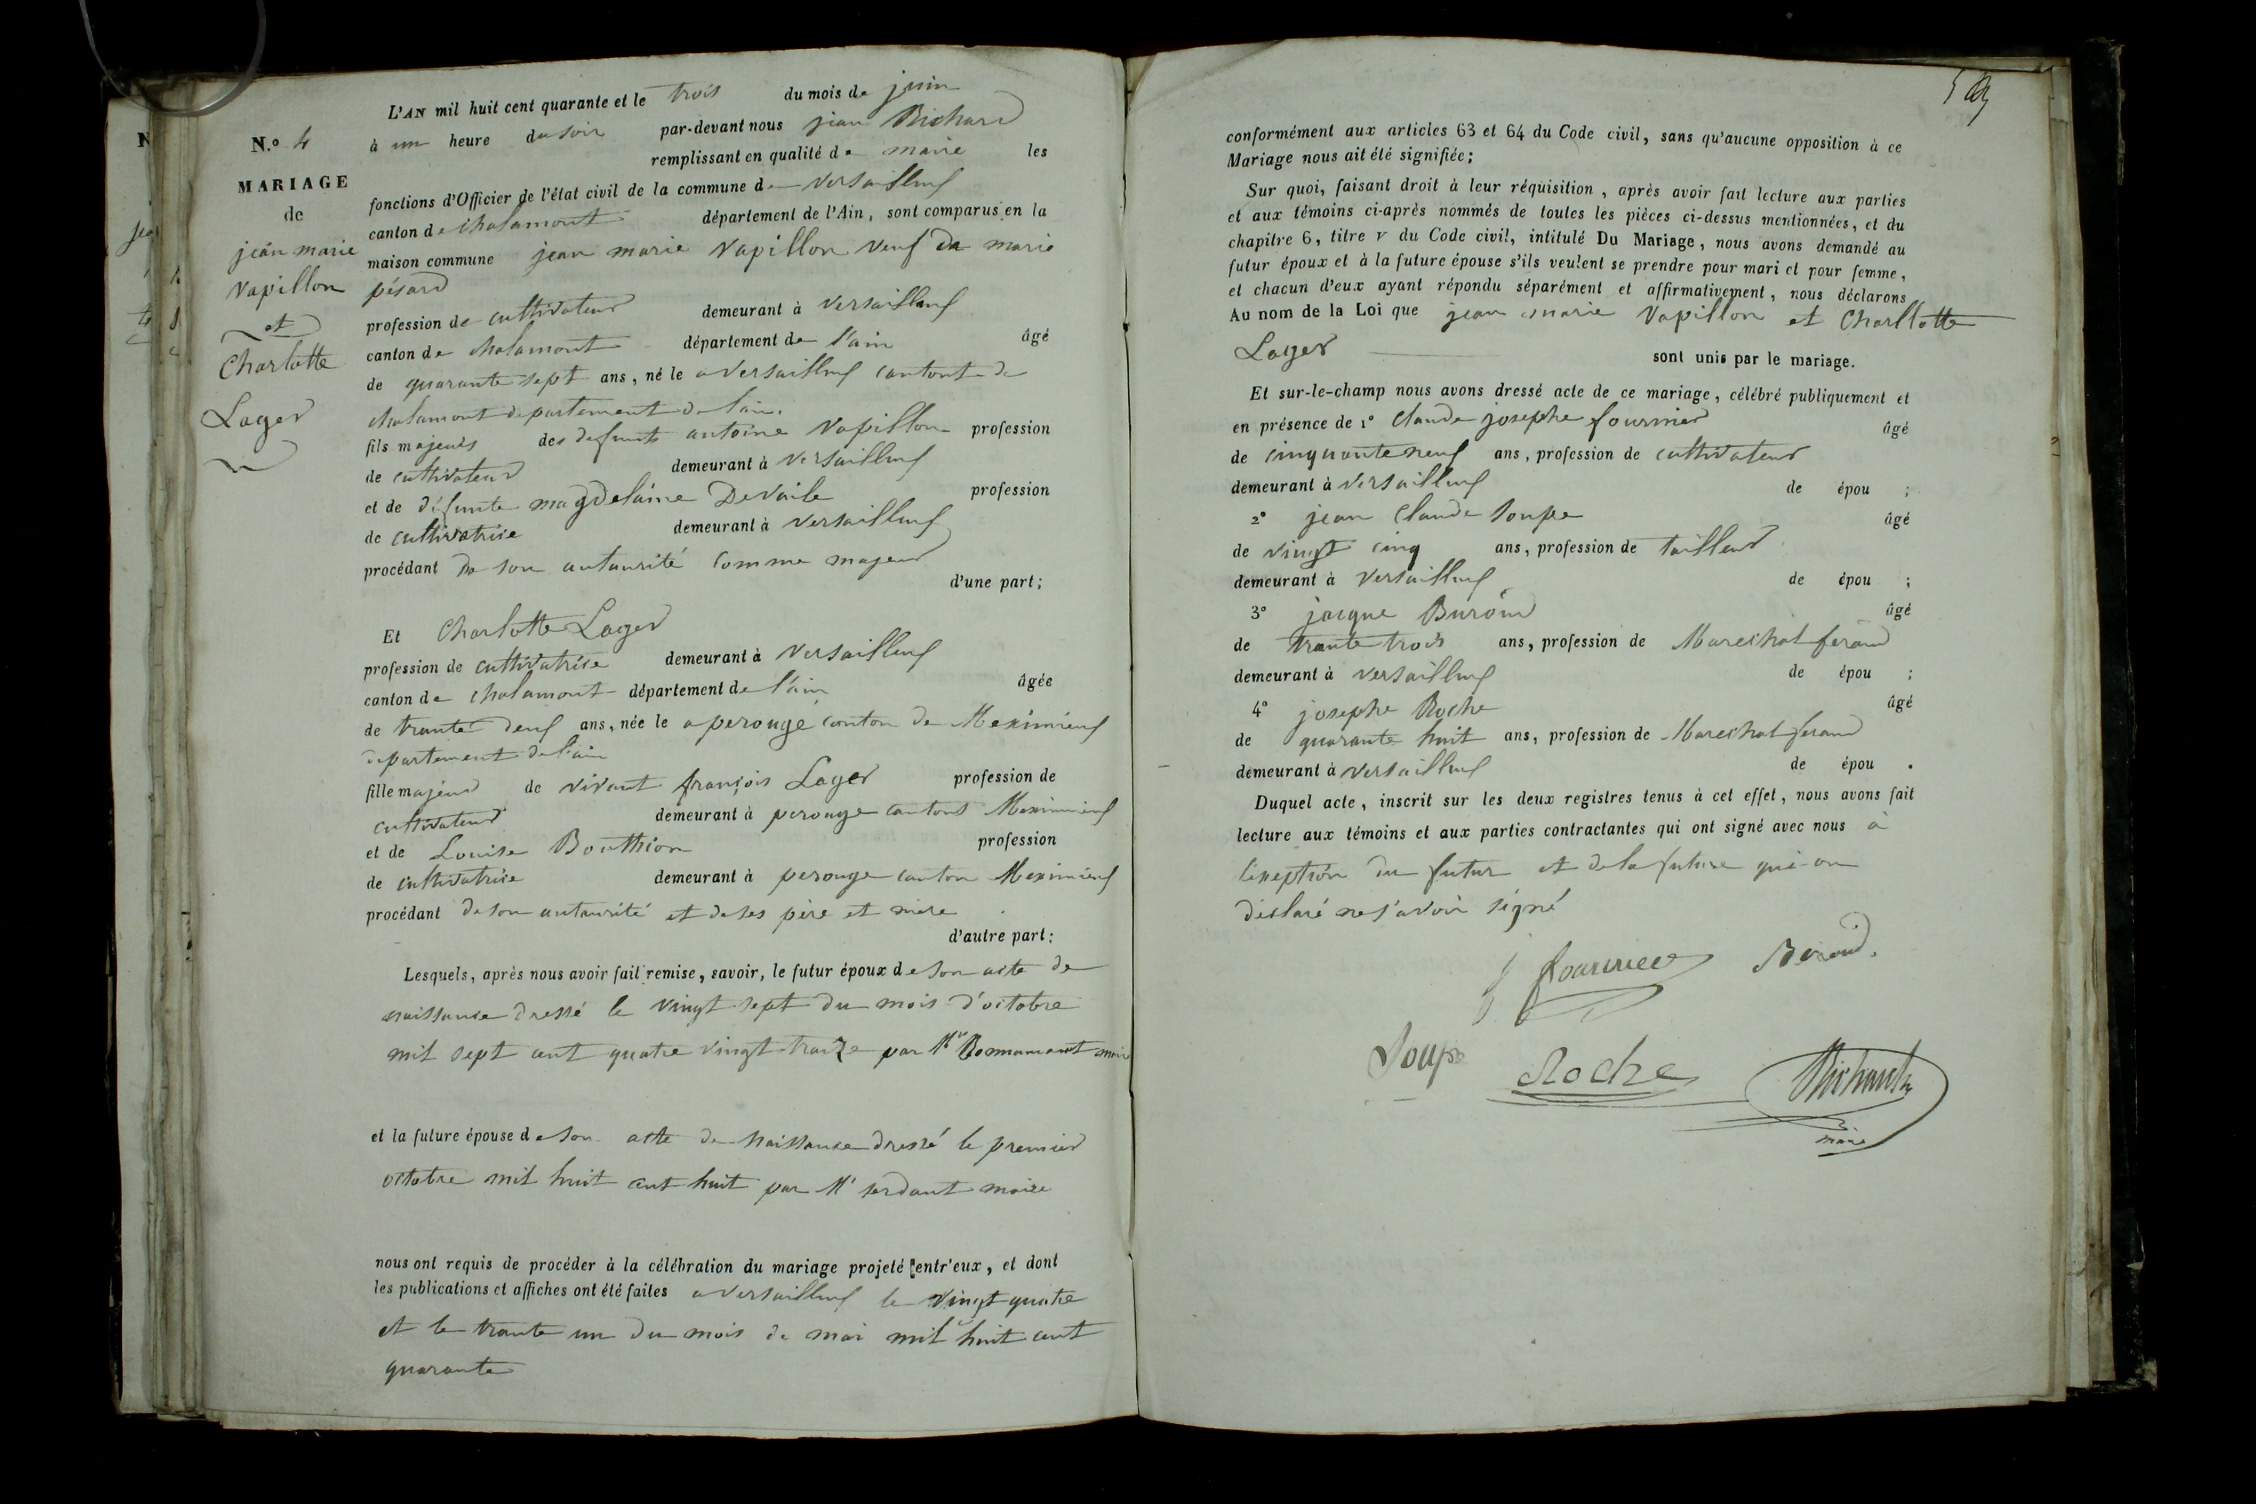 L'AN mil huit cent quarante et le trois du mois de juin
N.° 4
à un heure du soir par-devant nous jean Richard
remplissant en qualité de maire les
MARIAGE
fonctions d'Officier de l'état civil de la commune de Versailleux
de
canton de chalamont département de l'Ain, sont comparus en la
jean marie
maison commune jean marie Vapillon veuf de marie
Vapillon
pésard
et
profession de cultivateur demeurant à Versailleux
Charlotte
canton de chalamont département de l'ain âgé
Lager
de quarante sept ans, né le a Versailleux canton de
chalamont departement de l'ain
fils majeur des defunts antoine Vapillon profession
de cultivateur demeurant à Versailleux
et de défunte magdelaine Devaile profession
de cultivatrice demeurant à Versailleux
procédant de son autaurité comme majeur
d'une part;
Et Charlotte Lager
profession de cultivatrice demeurant à Versailleux
canton de chalamont département de l'ain âgée
de trante deux ans, née le a perouge canton de Meximieux
departement de l'ain
fille majeur de vivant françois Lager profession de
cultivateur demeurant à perouge canton Meximieux
et de Louise Bouthion profession
de cultivatrice demeurant à perouge canton Meximieux
procédant de son autaurité et de ses père et mère
d'autre part:
Lesquels, après nous avoir fait remise, savoir, le futur époux de son acte de
naissance dressé le vingt sept du mois d'octobre
mil sept cent quatre vingt traize par Mr Bonnamant maire
et la future épouse de son acte de naissance dressé le premier
octobre mil huit cent huit par Mr serdant maire
nous ont requis de procéder à la célébration du mariage projeté entr'eux, et dont
les publications et affiches ont été faites a Versailleux le vingt quatre
et le trante un du mois de mai mil huit cent
quarante
conformément aux articles 63 et 64 du Code civil, sans qu'aucune opposition à ce
Mariage nous ait été signifiée;
Sur quoi, faisant droit à leur réquisition, après avoir fait lecture aux parties
et aux témoins ci-après nommés de toutes les pièces ci-dessus mentionnées, et du
chapitre 6, titre v du Code civil, intitulé Du Mariage, nous avons demandé au
futur époux et à la future épouse s'ils veulent se prendre pour mari et pour femme,
et chacun d'eux ayant répondu séparément et affirmativement, nous déclarons
Au nom de la Loi que jean marie Vapillon et Charllotte
Lager sont unis par le mariage.
Et sur-le-champ nous avons dressé acte de ce mariage, célébré publiquement et
en présence de 1° Claude josephe fournier âgé
de cinquante neuf ans, profession de cultivateur
demeurant à Versailleux de épou ;
2° jean Claude Soupe âgé
de vingt cinq ans, profession de tailleur
demeurant à Versailleux de épou ;
3° jacque Buroud âgé
de trante trois ans, profession de Marechal ferand
demeurant à Versailleux de épou ;
4° josephe Roche âgé
de quarante huit ans, profession de Marechal ferand
demeurant à Versailleux de épou .
Duquel acte, inscrit sur les deux registres tenus à cet effet, nous avons fait
lecture aux témoins et aux parties contractantes qui ont signé avec nous à
l'exeption du futur et de la future qui on
déclaré ne s'avoir signé
fournier
Soupe Roche Richard
maire